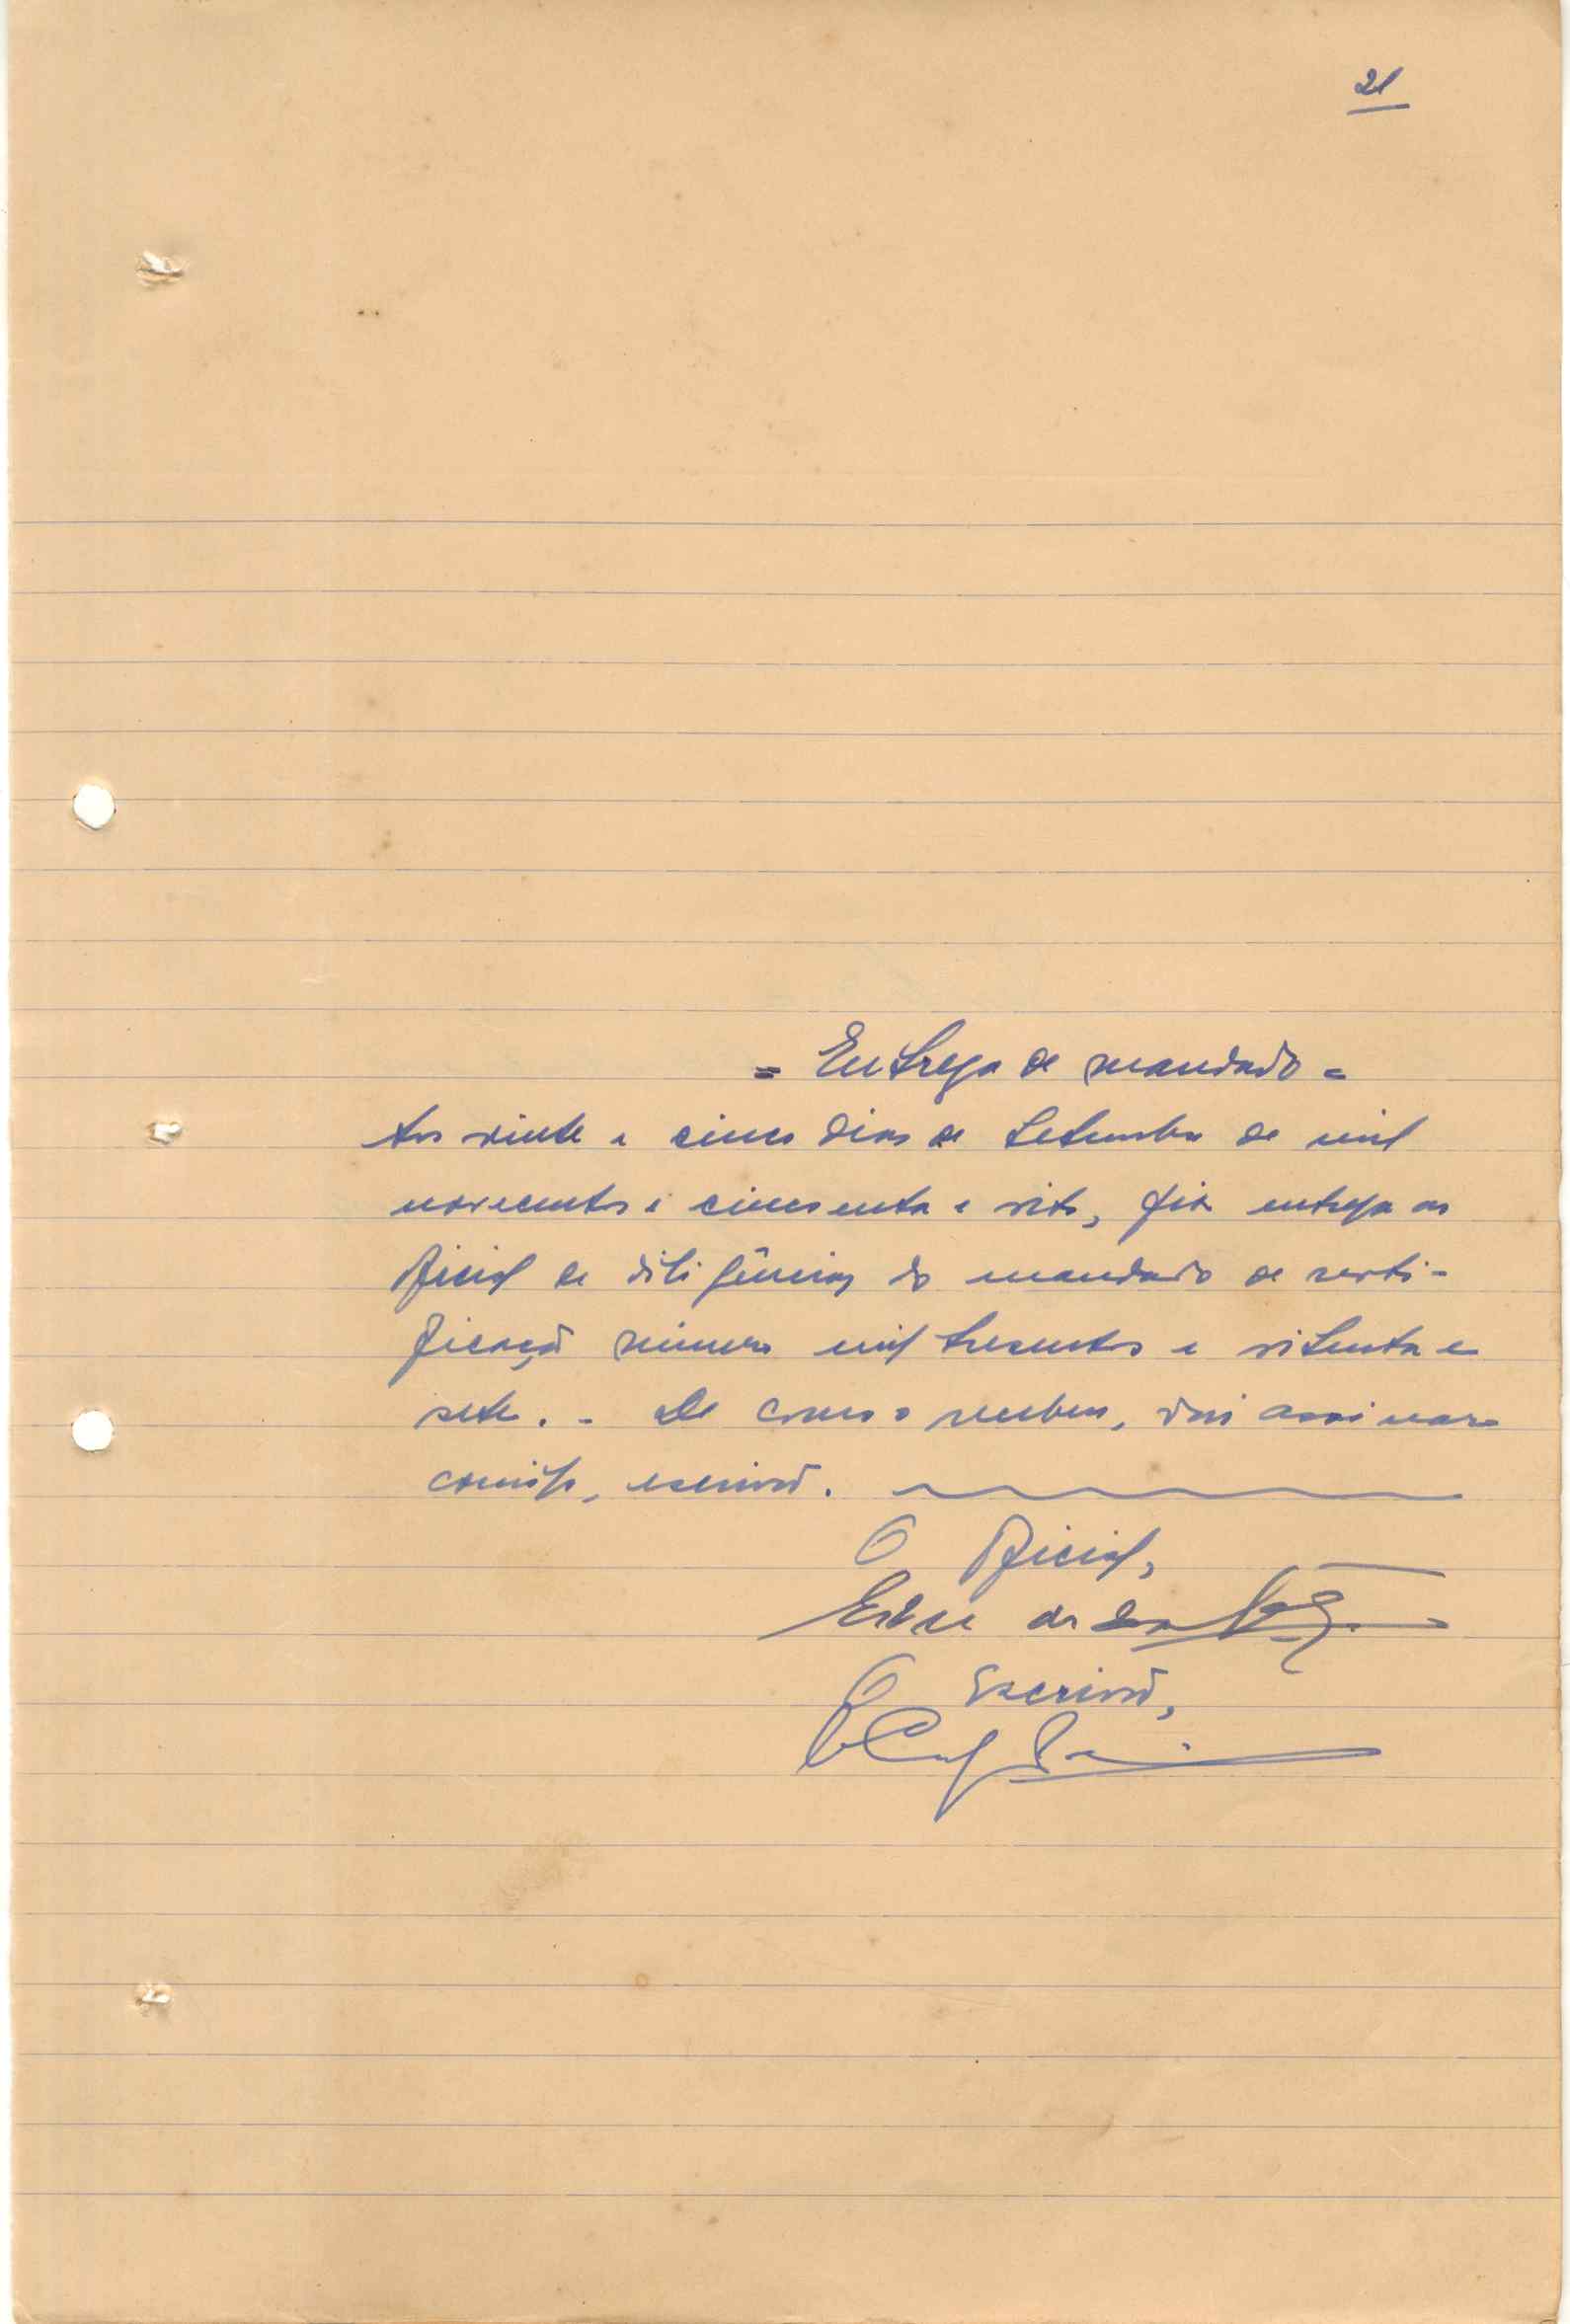 21
= Entrega de mandado =
Aos vinte e cinco dias de Setembro de mil
novecentos e cincoenta e oito, fiz entrega ao
oficial de diligências do mandado de
número mil tresentos e oitenta e
sete. - De como o recebeu, vai assinar
comigo, escrivão.
O Oficial,
O Escrivão,